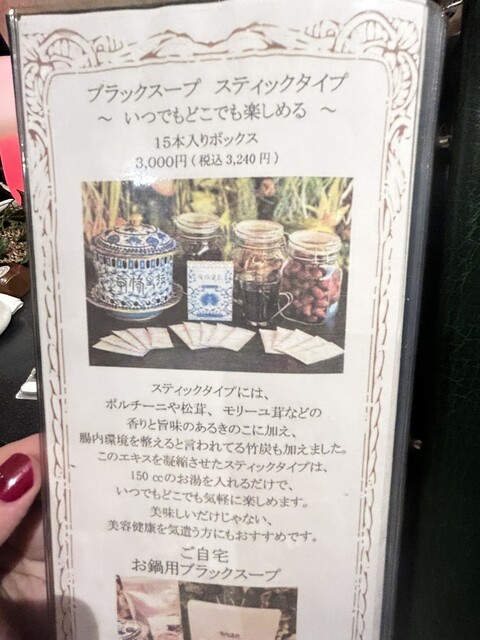 ブラックスープ スティックタイプ
～ いつでもどこでも楽しめる ～
15本入りボックス
3,000円 (税込 3,240円)
スティックタイプには、
ポルチーニや松茸、モリーユ茸などの
香りと旨味のあるきのこに加え、
腸内環境を整えると言われてる竹炭も加えました。
このエキスを凝縮させたスティックタイプは、
150 ccのお湯を入れるだけで、
いつでもどこでも気軽に楽しめます。
美味しいだけじゃない、
美容健康を気遣う方にもおすすめです。
ご自宅
お鍋用ブラックスープ